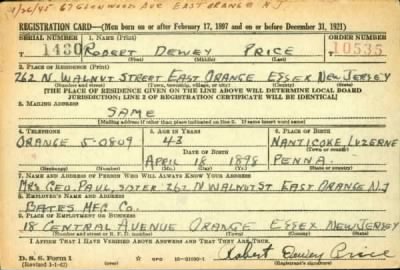 1/26/45 67 Glenwood Ave East Orange N.J.
REGISTRATION CARD—(Men born on or after February 17, 1897 and on or before December 31, 1921)
SERIAL NUMBER 1. NAME (Print) ORDER NUMBER
T 1480 ROBERT DEWEY PRICE 10535
(First) (Middle) (Last)
2. PLACE OF RESIDENCE (Print)
262 N. WALNUT STREET EAST ORANGE ESSEX NEW JERSEY
(Number and street) (Town, township, village, or city) (County) (State)
[THE PLACE OF RESIDENCE GIVEN ON THE LINE ABOVE WILL DETERMINE LOCAL BOARD
JURISDICTION; LINE 2 OF REGISTRATION CERTIFICATE WILL BE IDENTICAL]
3. MAILING ADDRESS
SAME
[Mailing address if other than place indicated on line 2. If same insert word same]
4. TELEPHONE 5. AGE IN YEARS 6. PLACE OF BIRTH
43 NANTICOKE LUZERNE
ORANGE 5-0809 DATE OF BIRTH (Town or county)
APRIL 18 1898 PENNA.
(Exchange) (Number) (Mo.) (Day) (Yr.) (State or country)
7. NAME AND ADDRESS OF PERSON WHO WILL ALWAYS KNOW YOUR ADDRESS
MRS GEO. PAUL, SISTER 262 N WALNUT ST EAST ORANGE N.J
8. EMPLOYER'S NAME AND ADDRESS
BATES MFG CO.
9. PLACE OF EMPLOYMENT OR BUSINESS
18 CENTRAL AVENUE ORANGE ESSEX NEW JERSEY
(Number and street or R. F. D. number) (Town) (County) (State)
I AFFIRM THAT I HAVE VERIFIED ABOVE ANSWERS AND THAT THEY ARE TRUE.
D. S. S. Form 1
(Revised 1-1-42) GPO 16—21630-1 Robert Dewey Price
(Registrant's signature)